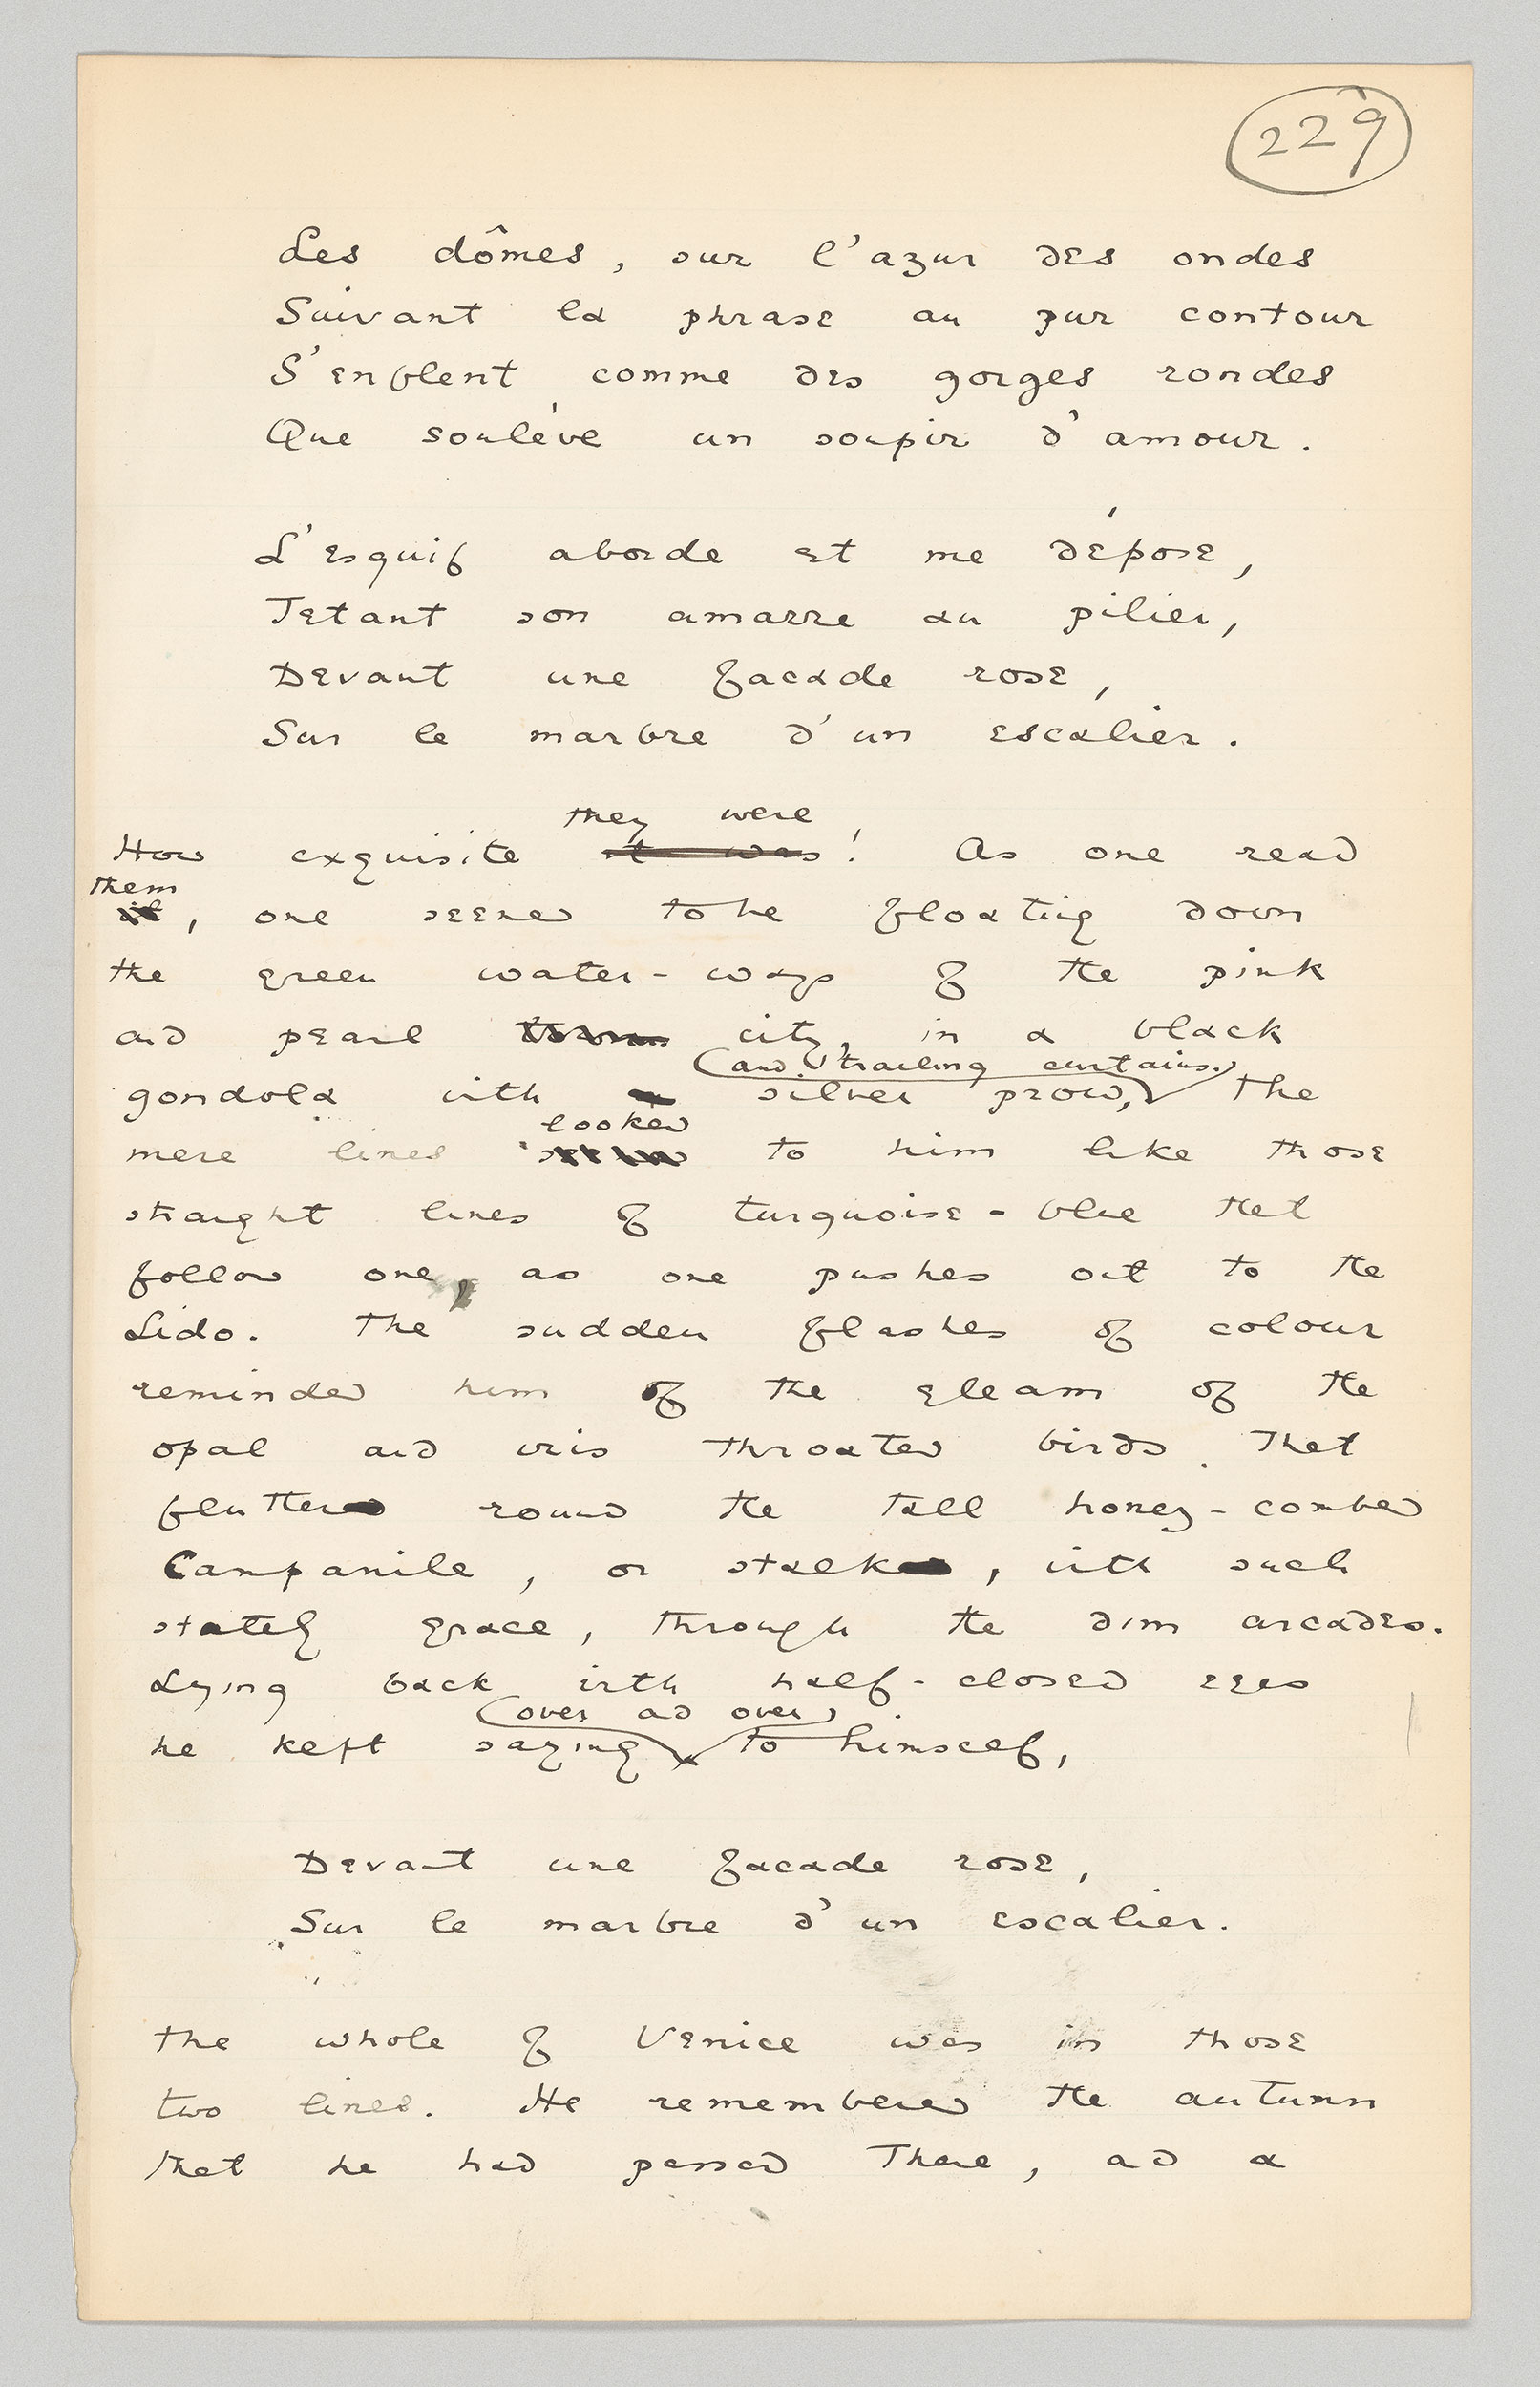 229
Les dômes, sur l'azur des ondes
Suivant la phrase au pur contour
S'enflent comme des gorges rondes
Que soulève un soupir d'amour.
L'esquif aborde et me dépose,
Jetant son amarre au pilier,
Devant une facade rose,
Sur le marbre d'un escalier.
they were
How exquisite it was! As one read
them
it, one seemed to be floating down
the green water-ways of the pink
and pearl town city, in a black
(and trailing curtains.)
gondola with a silver prow, The
looked
mere lines seemed to him like those
straight lines of turquoise-blue that
follow one, as one pushes out to the
Lido. The sudden flashes of colour
reminded him of the gleam of the
opal and iris throated birds that
flutter round the tall honey-combed
Campanile, or stalk, with such
stately grace, through the dim arcades.
Lying back with half-closed eyes
(over and over)
he kept saying to himself,
Devant une facade rose,
Sur le marbre d'un escalier.
The whole of Venice was in those
two lines. He remembered the autumn
that he had passed there, and a